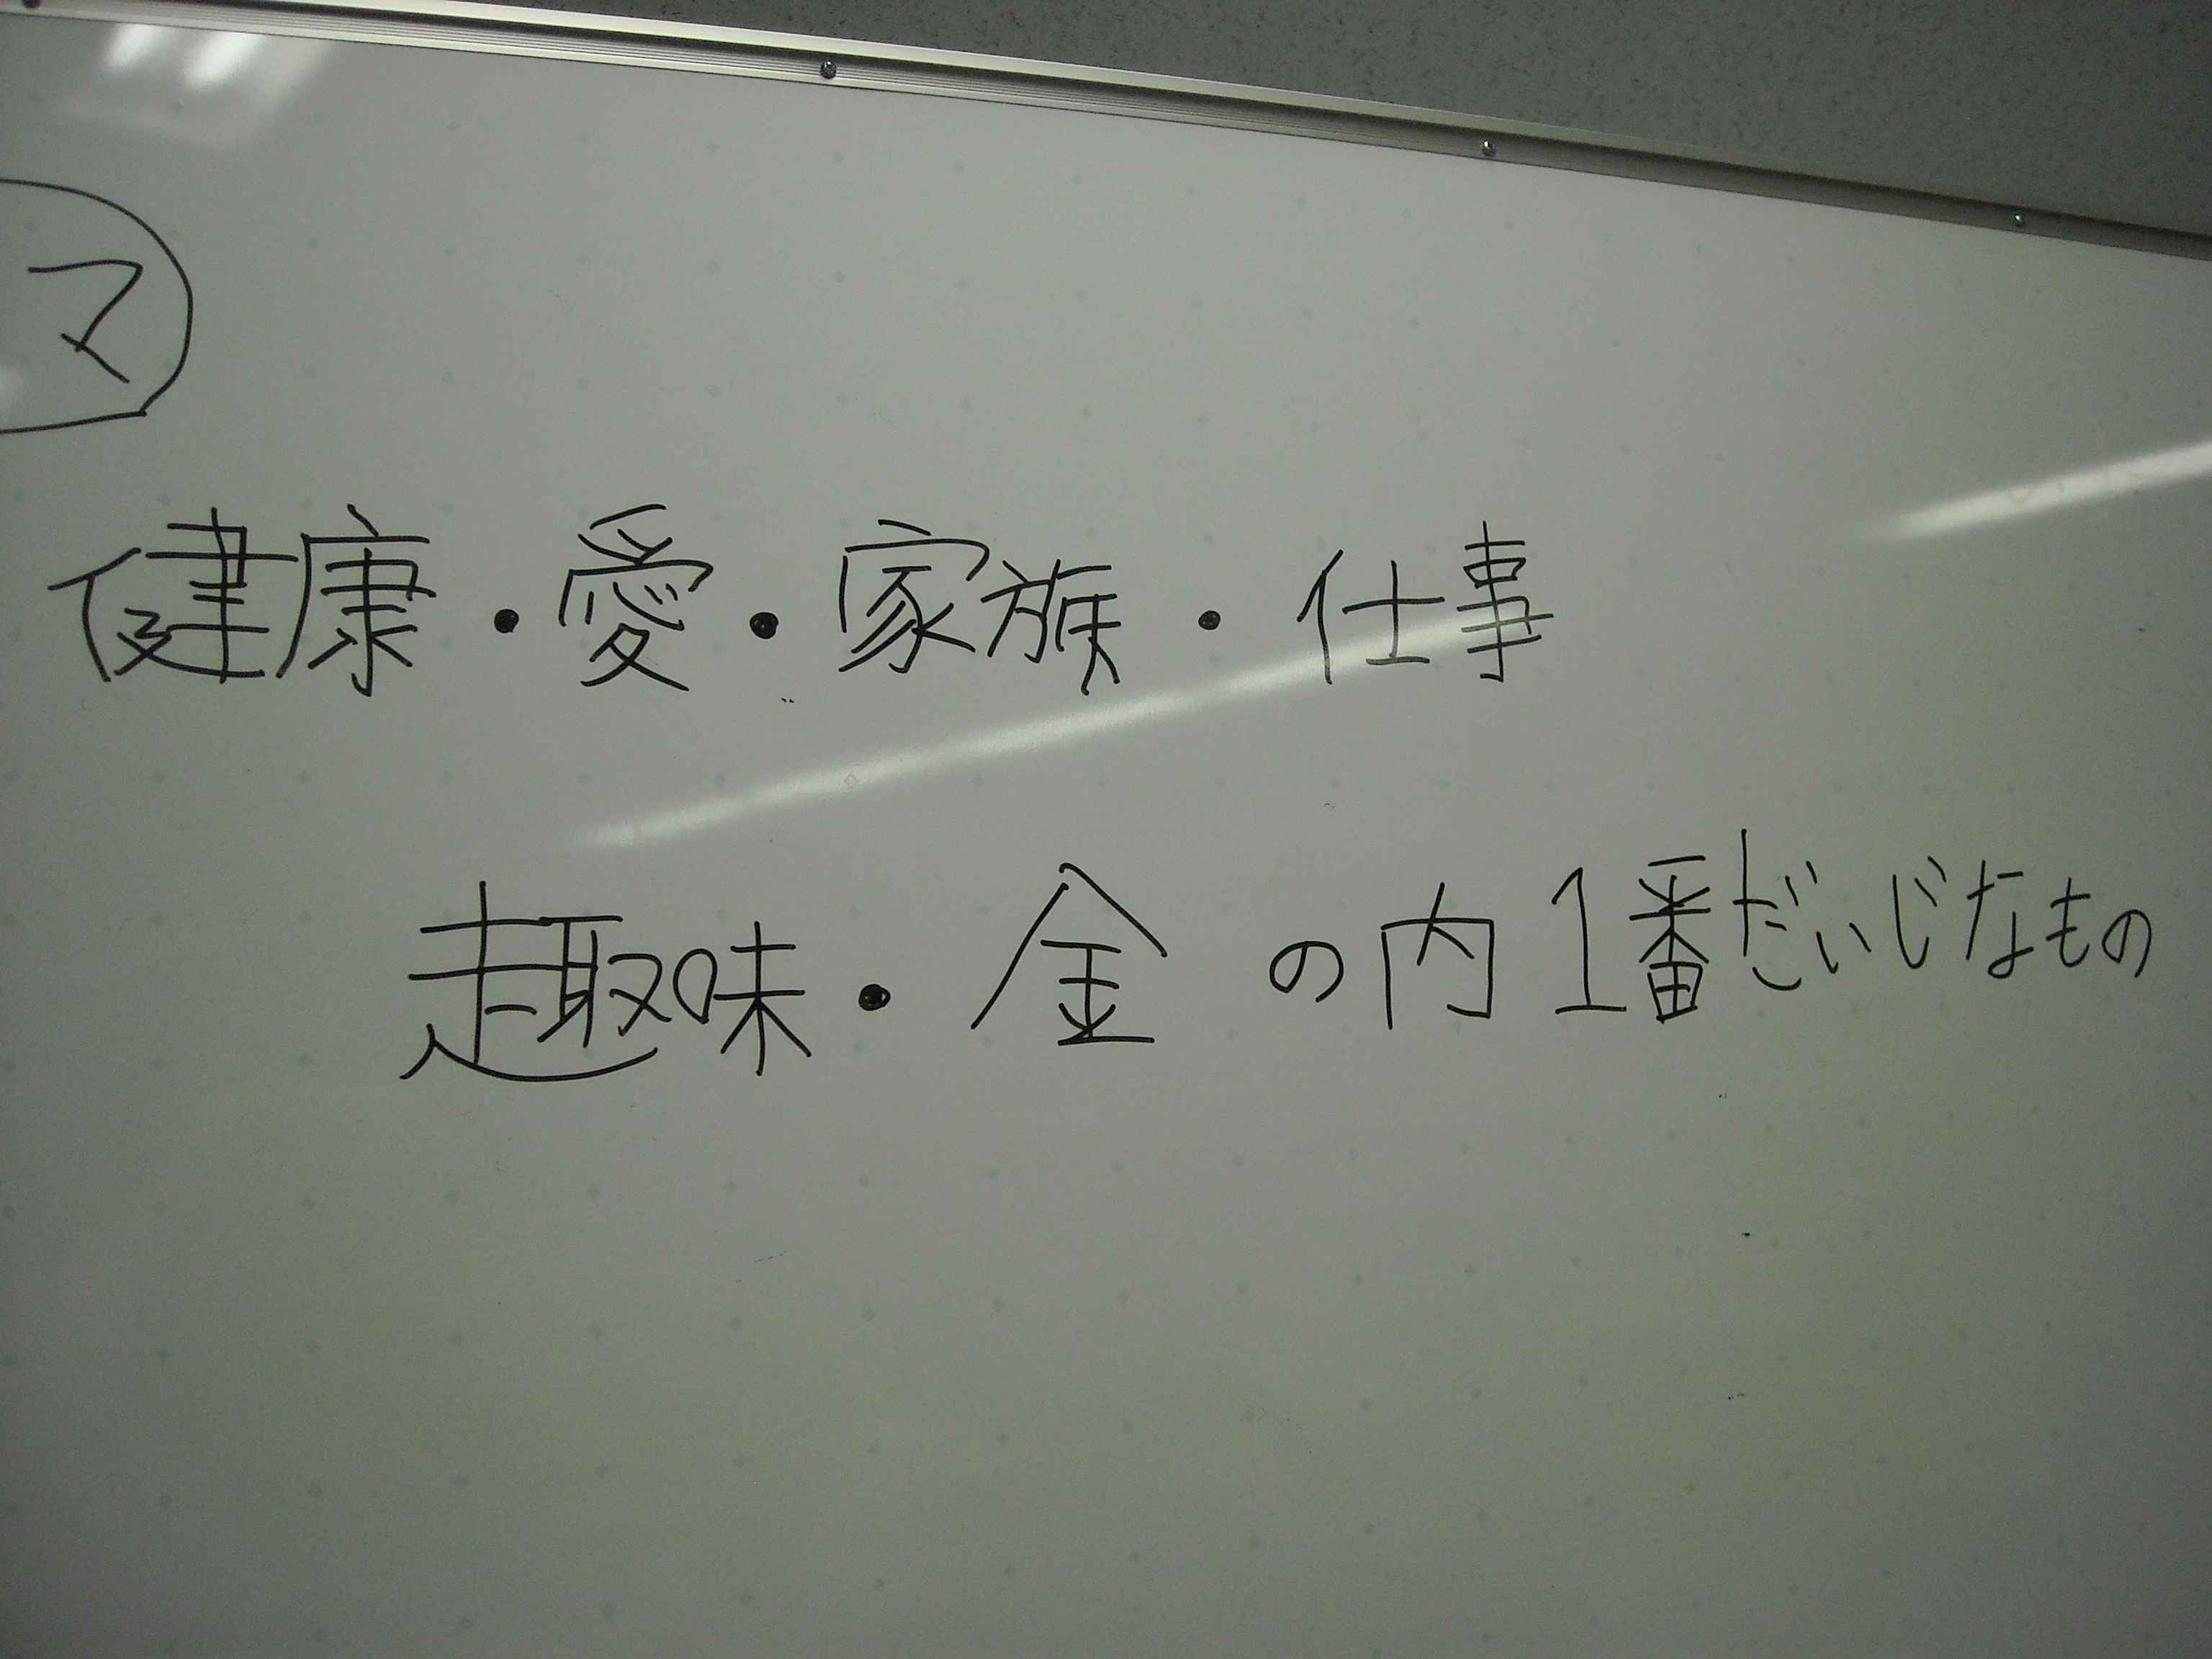 マ
健康・愛・家族・仕事
趣味・金 の内1番だいじなもの